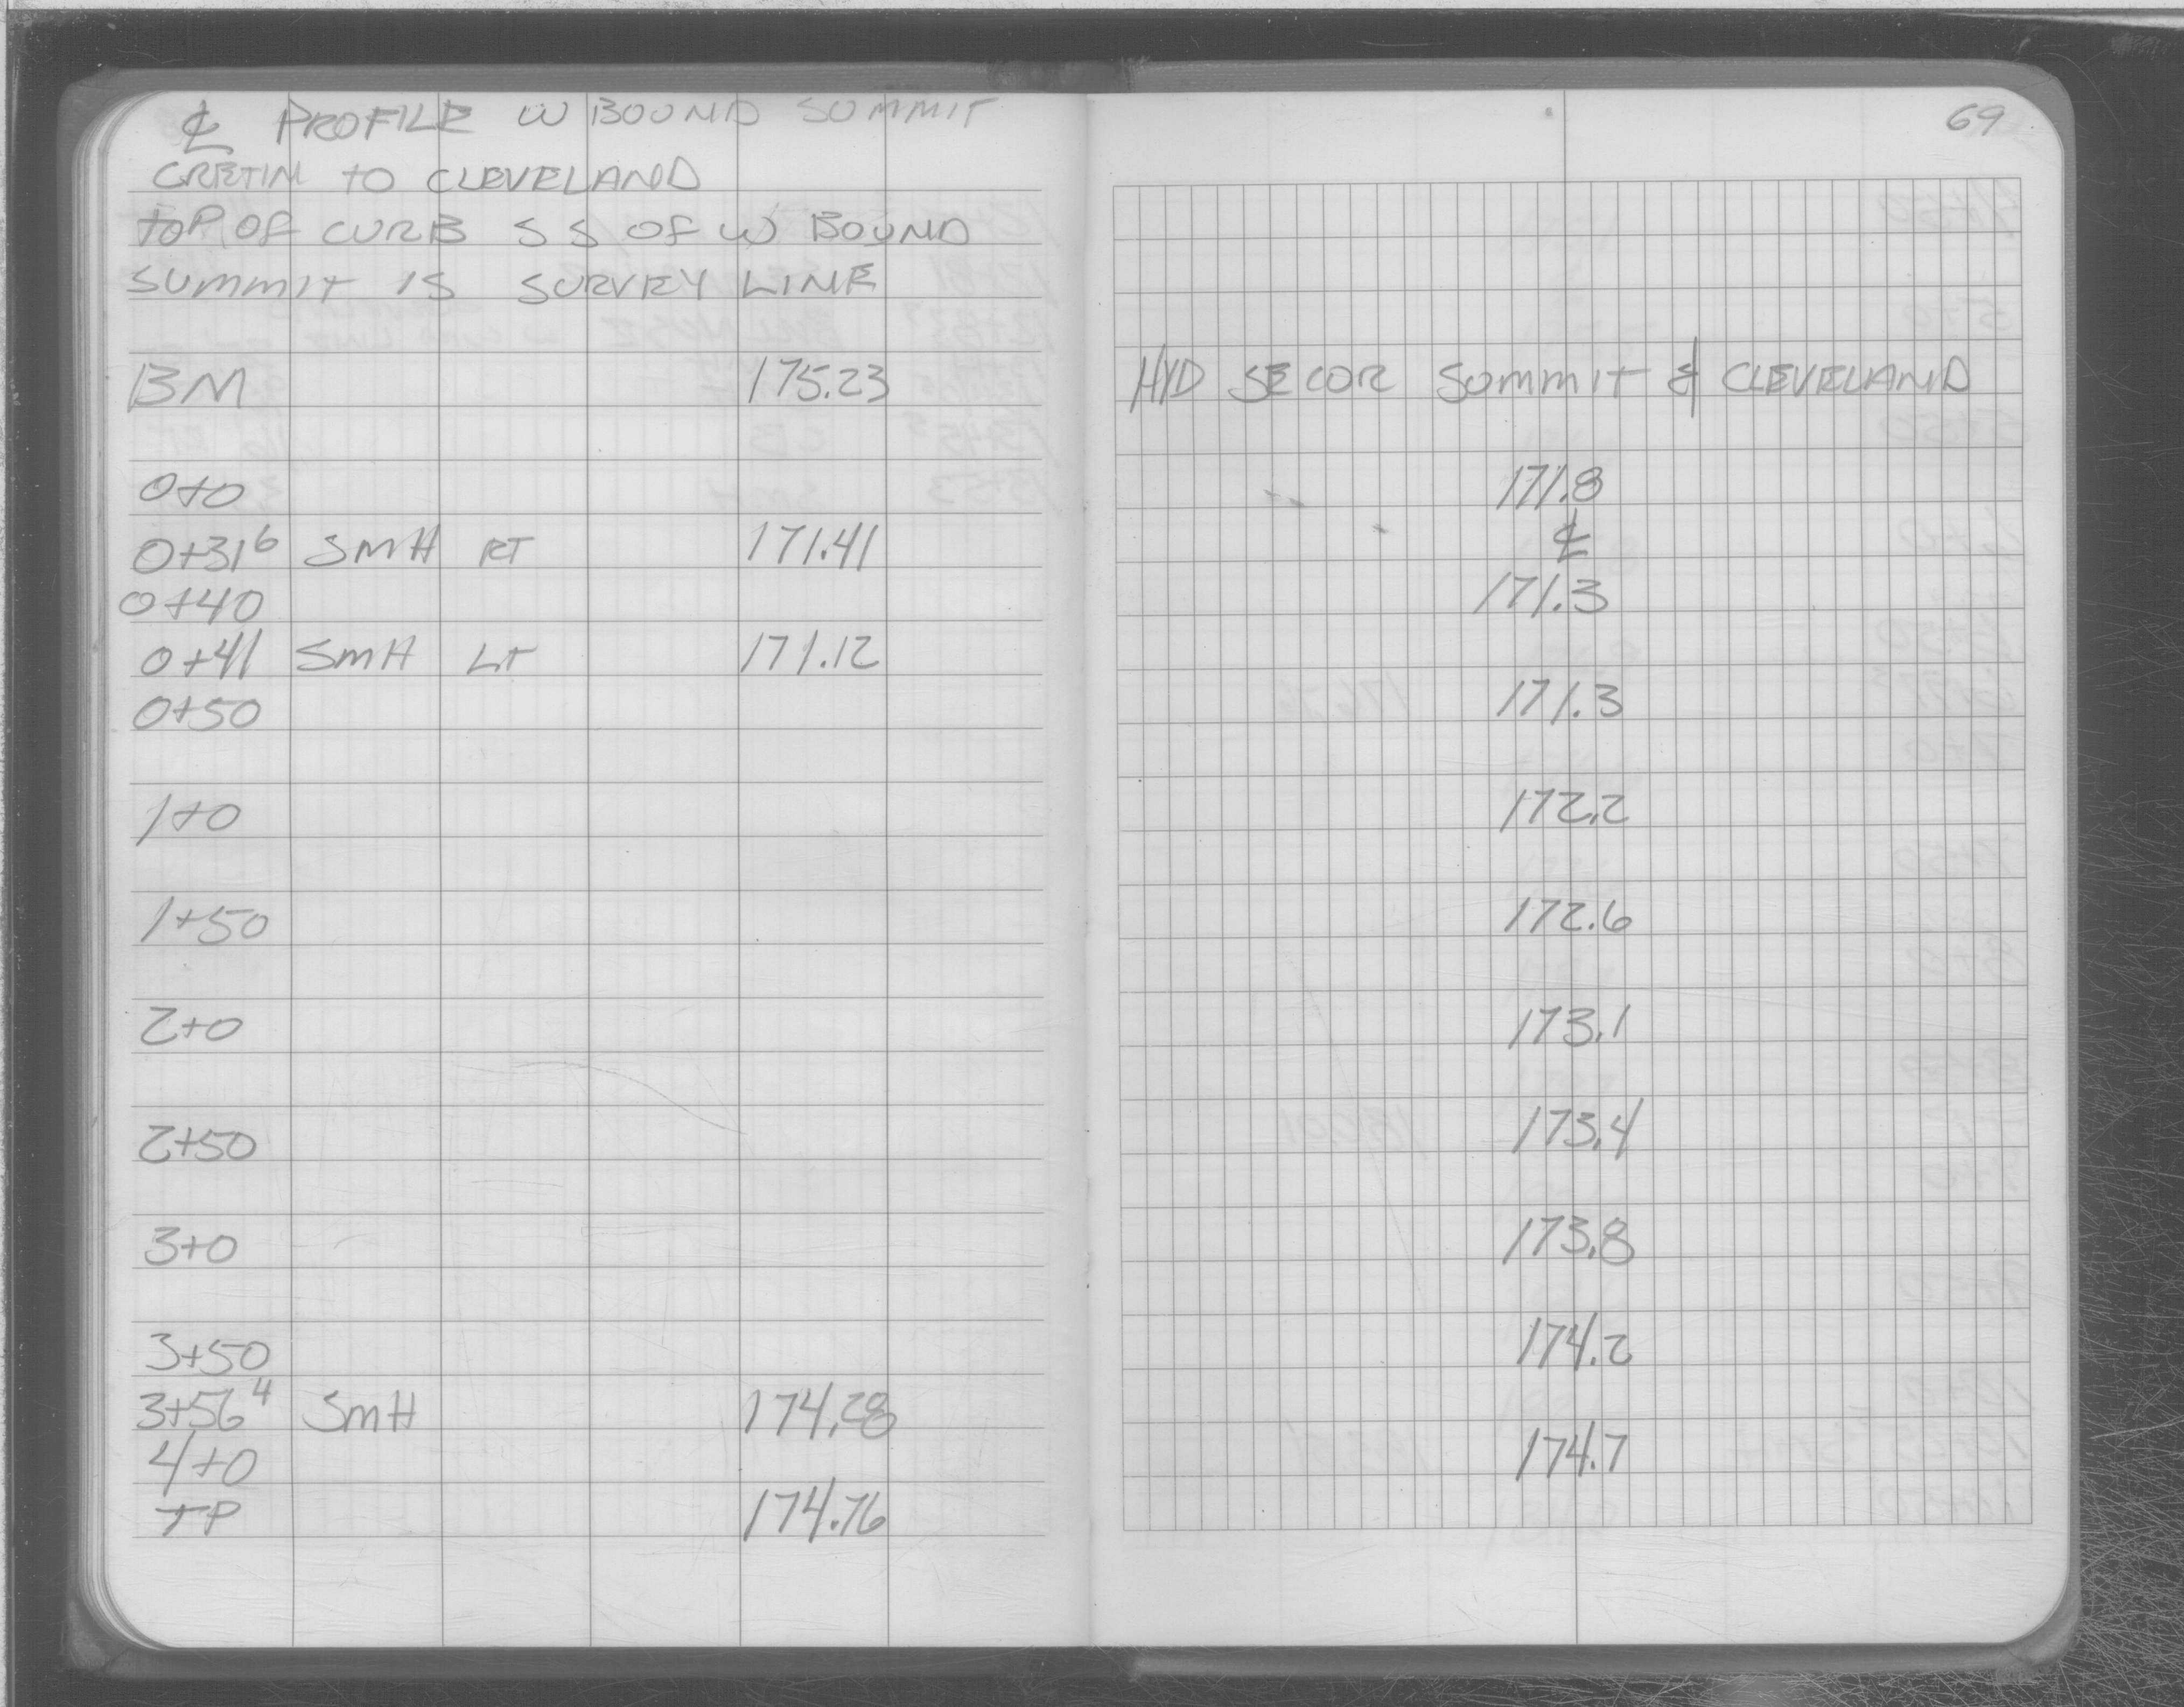 ℄ PROFILE W BOUND SUMMIT
CRETIN TO CLEVELAND
TOP OF CURB S S OF W BOUND
SUMMIT IS SURVEY LINE
BM 175.23
0+0
0+31⁶ SMH RT 171.41
0+40
0+41 SMH LT 171.12
0+50
1+0
1+50
2+0
2+50
3+0
3+50
3+56⁴ SMH 174.28
4+0
TP 174.76
69
HYD SE COR SUMMIT & CLEVELAND
171.8
℄
171.3
171.3
172.2
172.6
173.1
173.4
173.8
174.2
174.7